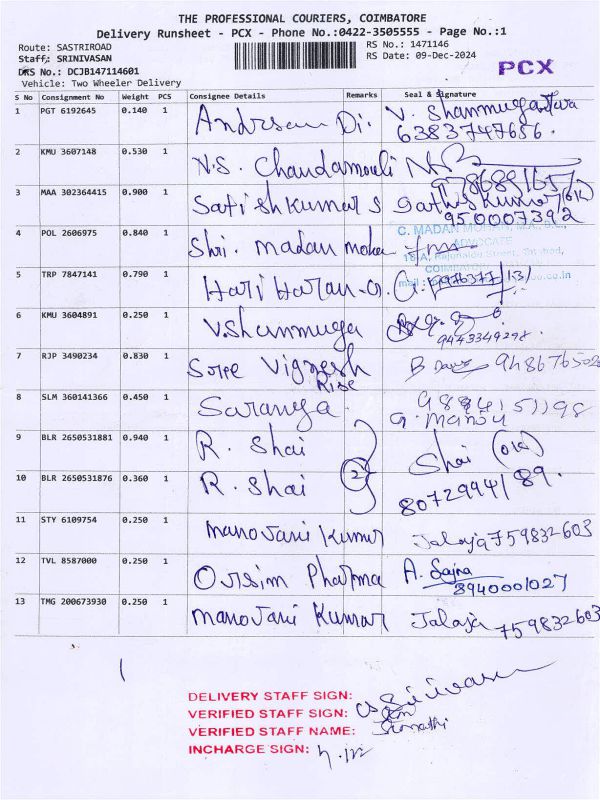 THE PROFESSIONAL COURIERS, COIMBATORE
Delivery Runsheet - PCX - Phone No.:0422-3505555 - Page No.:1
Route: SASTRIROAD
RS No.: 1471146
Staff: SRINIVASAN
RS Date: 09-Dec-2024
DRS No.: DCJB147114601
PCX
Vehicle: Two Wheeler Delivery
S No Consignment No Weight PCS Consignee Details Remarks Seal & Signature
1 PGT 6192645 0.140 1 Di. V.
6383747656.
2 KMU 3607148 0.530 1 N.S. Chandamouli
3 MAA 302364415 0.900 1 Satishkumar S
950007392
4 POL 2606975 0.840 1 Shri. madan moha
C. MADAN MOHAN,
ADVOCATE
COIMBATORE
5 TRP 7847141 0.790 1 Hari Haran-G.
6 KMU 3604891 0.250 1 V.Shanmuga
9443349298.
7 RJP 3490234 0.830 1 Sree Vignesh
Rise
8 SLM 360141366 0.450 1 Saranya.
9884151198
9 BLR 2650531881 0.940 1 R. Shai Shai
10 BLR 2650531876 0.360 1 R. Shai 2
8072994189.
11 STY 6109754 0.250 1 manojani Kumar Jalaja 759832603
12 TVL 8587000 0.250 1 Pharma A. Sajna
8940001027
13 TMG 200673930 0.250 1 manojani Kumar Jalaja 759832603
DELIVERY STAFF SIGN:
VERIFIED STAFF SIGN:
VERIFIED STAFF NAME:
INCHARGE SIGN: